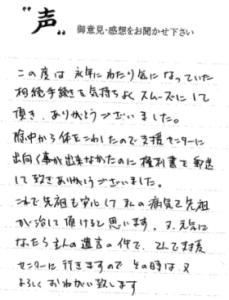 "声" 御意見・感想をお聞かせ下さい
この度は 永年にわたり気になっていた
相続手続きを気持ちよく スムーズにして
頂き、ありがとうございました。
途中から体をこわしたので支援センターに
出向く事が出来なかたのに 権利書を郵送
して頂きありがとうございました。
これで先祖も安心して 私の病気も先祖
が治して頂けると思います。又、元気に
なったら主人の遺言の件で、
センターに行きますので その時は又
よろしくおねがい致します